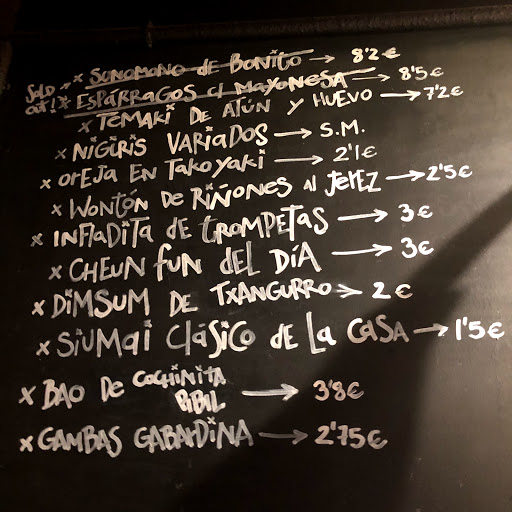 SOLD OUT! x SUNOMONO DE BONITO → 8'2 €
x ESPÁRRAGOS c/ MAYONESA → 8'5 €
x TEMAKI DE ATÚN Y HUEVO → 7'2 €
x NIGIRIS VARIADOS → S.M.
x OREJA EN TAKOYAKI → 2'1 €
x WONTÓN DE RIÑONES AL JEREZ → 2'5 €
x INFLADITA DE TROMPETAS → 3 €
x CHEUN FUN DEL DÍA → 3 €
x DIMSUM DE TXANGURRO → 2 €
x SIUMAI CLÁSICO DE LA CASA → 1'5 €
x BAO DE COCHINITA
PIBIL → 3'8 €
x GAMBAS GABARDINA → 2'75 €